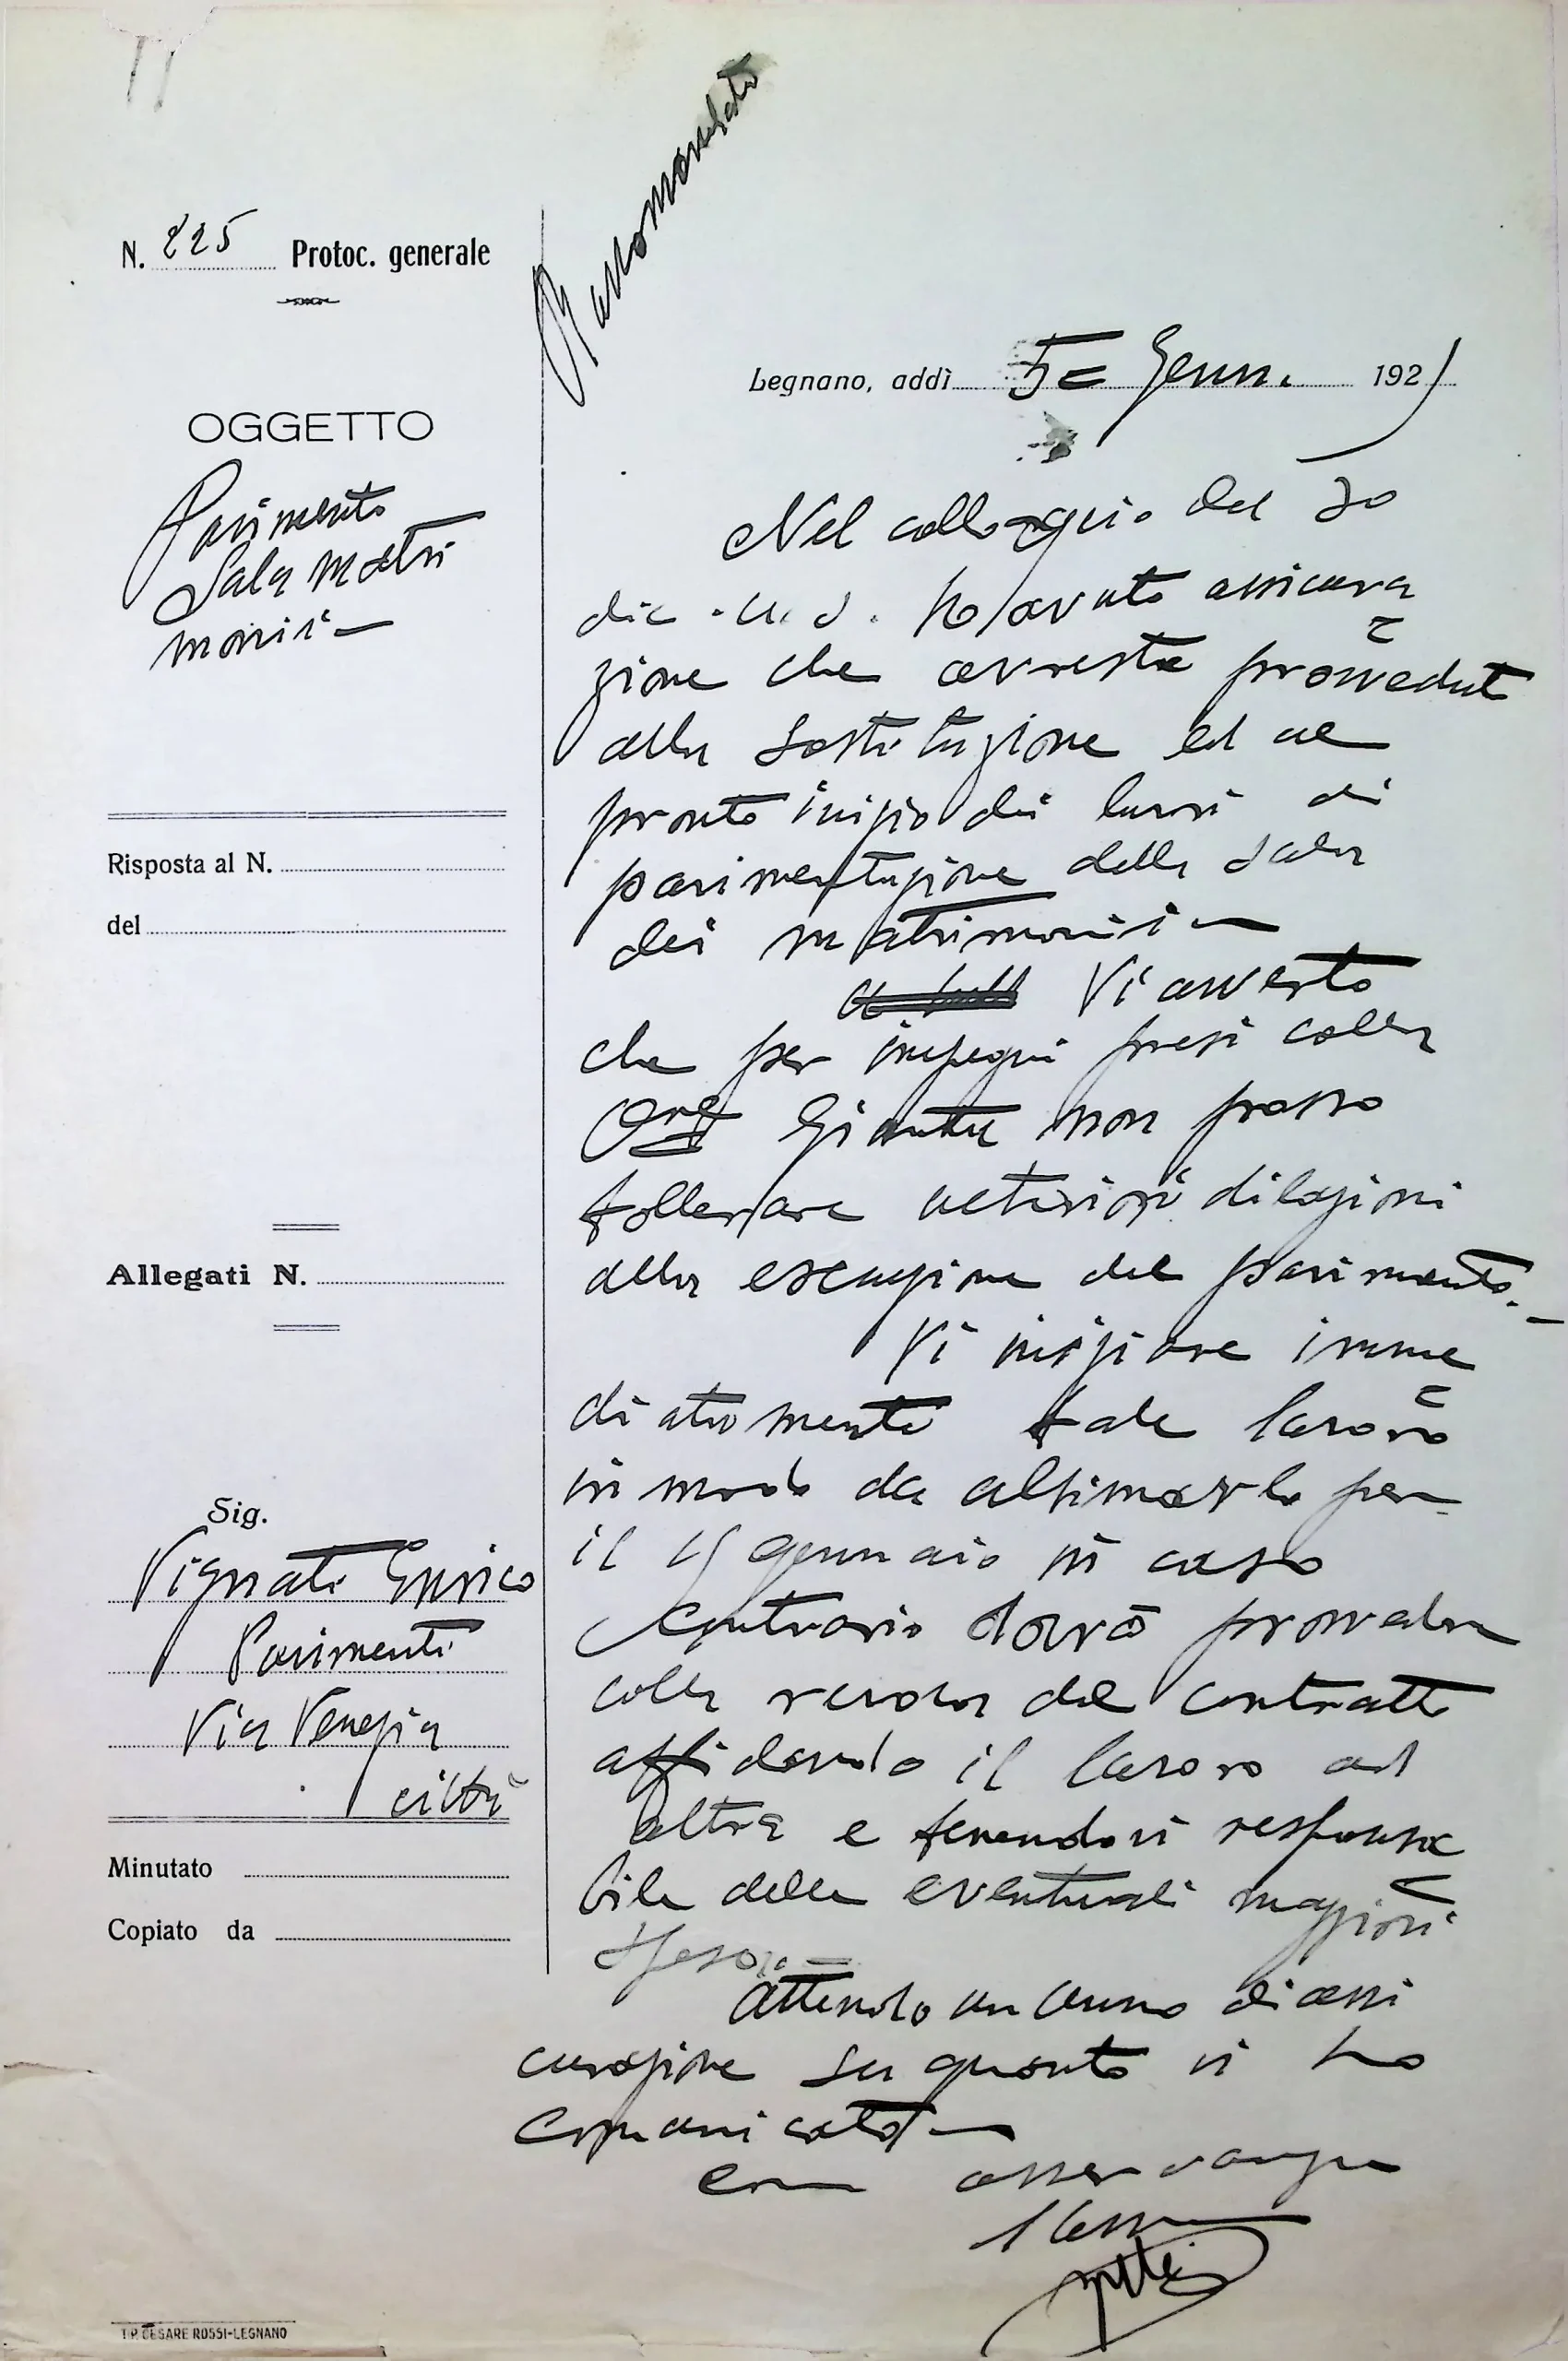 Raccomandata
N. 225 Protoc. generale
Legnano, addì 5 = Genn. 192
OGGETTO
Pavimento
Sala matri
moni -
Nel colloquio del 30
dic. u. s. ho avuto assicura
zione che avreste provveduto
alla sostituzione ed al
pronto inizio dei lavori di
pavimentazione della sala
dei matrimoni -
Vi avverto
che per impegni presi colla
On. Giunta non posso
tollerare ulteriori dilazioni
alla esecuzione del pavimento. -
Vi iniziare imme
diatamente tale lavoro
in modo da ultimarlo per
il 15 gennaio in caso
contrario dovrò provvedere
colla revoca del contratto
affidando il lavoro ad
altra e tenendovi responsa
bile delle eventuali maggiori
spese. =
Attendo un cenno di assi
curazione su quanto vi ho
comunicato -
con osservanza
Risposta al N.
del
Allegati N.
Sig.
Vignati Enrico
Pavimenti
Via Venezia
città
Minutato
Copiato da
TIP. CESARE ROSSI-LEGNANO